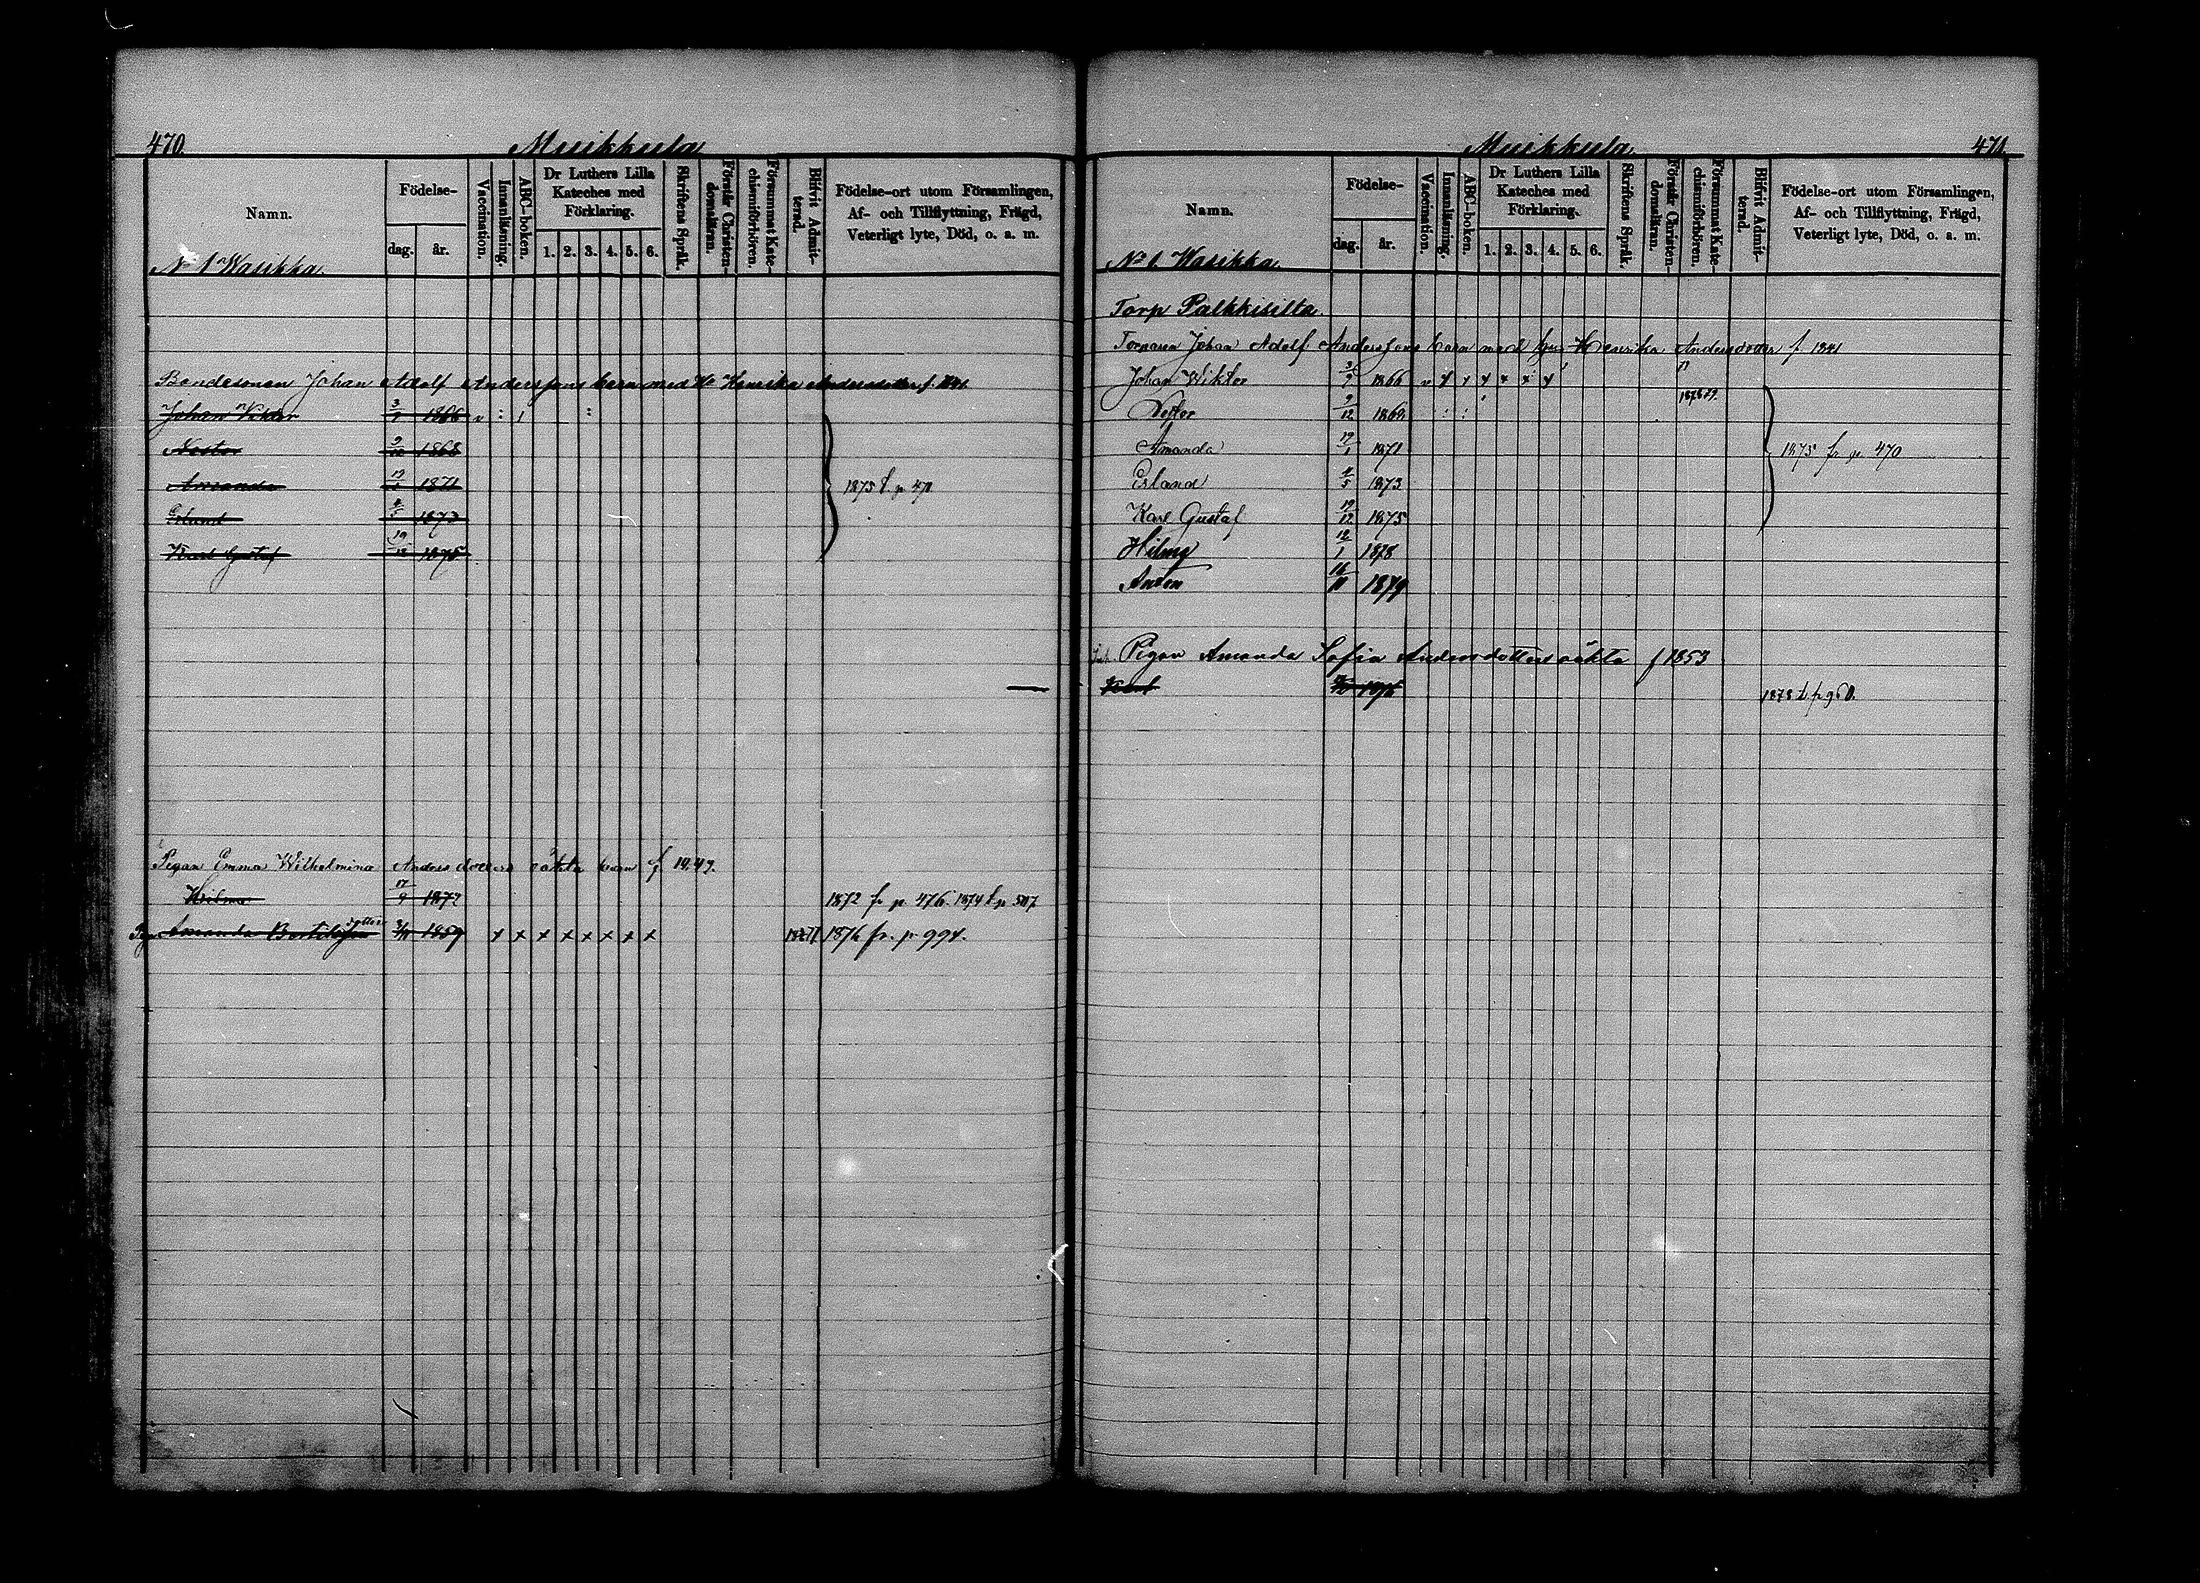 470.
Muikkula
Namn.
Födelse-
dag.
år.
Vaccination.
Innanläsning.
ABC-boken.
Dr Luthers Lilla
Kateches med
Förklaring.
1. 2. 3. 4. 5. 6.
Skriftens Språk.
Förstår Christen-
domsläran.
Försummat Kate-
chismiförhören.
Blifvit Admit-
terad.
Födelse-ort utom Församlingen,
Af- och Tillflyttning, Frägd,
Veterligt lyte, Död, o. a. m.
No 1 Wasikka.
Bondesonen Johan Adolf Anderssons barn med Ho Henrika Andersdotter f. 1841
Johan Viktor 3/9 1866 v : 1 :
Nestor 1868
Amanda 1871
1875 t. p. 471
Erland 4/5 1873
Karl Gustaf 19/12 1875
Pigan Emma Wilhelmina Andersdotters oäkta barn f 1849.
Hilma 17/9 1872 1872 fr p. 476. 1874 t p 507
Pig. Amanda Bertils dotter 1859 x x x x x x x x 1877 1876 fr. p. 994.
Muikkula.
471.
Namn.
Födelse-
dag.
år.
Vaccination.
Innanläsning.
ABC-boken.
Dr Luthers Lilla
Kateches med
Förklaring.
1. 2. 3. 4. 5. 6.
Skriftens Språk.
Förstår Christen-
domsläran.
Försummat Kate-
chismiförhören.
Blifvit Admit-
terad.
Födelse-ort utom Församlingen,
Af- och Tillflyttning, Frägd,
Veterligt lyte, Död, o. a. m.
No 1. Wasikka.
Torp Palkkisilta.
Torparen Johan Adolf Anderssons barn med hu Henrika Andersdotter f 1841
Johan Wiktor 3/9 1866 v x x x x x x
1878 79.
Nestor 9/12 1868 : :
Amanda 19/1 1871 1875 fr p. 470
Erland 4/5 1873
Karl Gustaf 19/12 1875
Hilma 12/1 1878
Anton 16/11 1879
Pigan Amanda Sofia Andersdotters oäkta f 1853
Karl 1878 t. p 960.